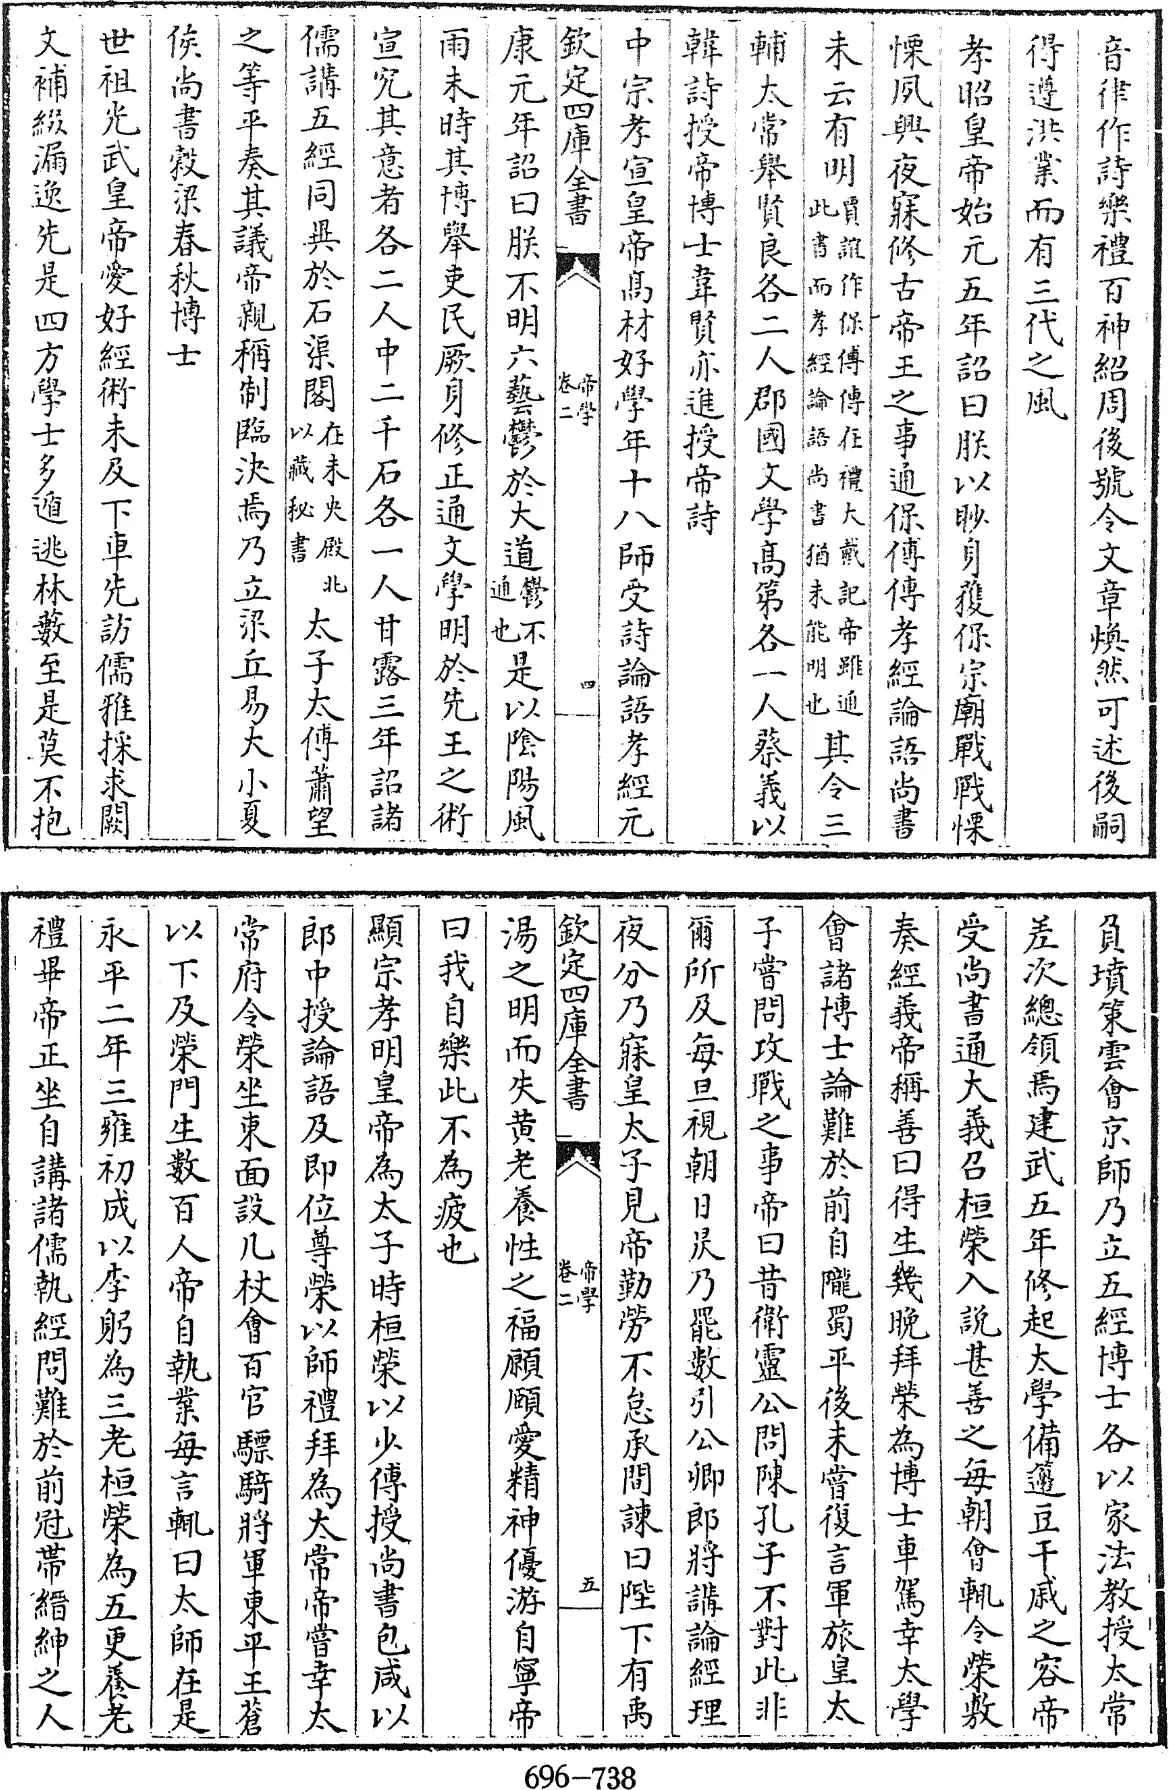 音律作詩樂禮百神紹周後號令文章煥然可述後嗣
得遵洪業而有三代之風
孝昭皇帝始元五年詔曰朕以眇身獲保宗廟戰戰慄
慄夙興夜寐修古帝王之事通保傅傳孝經論語尚書
未云有明賈誼作保傅傳在禮大戴記帝雖通此書而孝經論語尚書猶未能明也其令三
輔太常舉賢良各二人郡國文學高第各一人蔡義以
韓詩授帝博士韋賢亦進授帝詩
中宗孝宣皇帝高材好學年十八師受詩論語孝經元
欽定四庫全書 帝學 卷二 四
康元年詔曰朕不明六藝鬱於大道鬱不通也是以陰陽風
雨未時其博舉吏民厥身修正通文學明於先王之術
宣究其意者各二人中二千石各一人甘露三年詔諸
儒講五經同異於石渠閣在未央殿北以藏秘書太子太傅蕭望
之等平奏其議帝親稱制臨決焉乃立梁丘易大小夏
侯尚書穀梁春秋博士
世祖光武皇帝愛好經術未及下車先訪儒雅採求闕
文補綴漏逸先是四方學士多遁逃林藪至是莫不抱
負墳策雲會京師乃立五經博士各以家法教授太常
差次總領焉建武五年修起太學備籩豆干戚之容帝
受尚書通大義召桓榮入說甚善之每朝會輒令榮敷
奏經義帝稱善曰得生幾晚拜榮為博士車駕幸太學
會諸博士論難於前自隴蜀平後未嘗復言軍旅皇太
子嘗問攻戰之事帝曰昔衛靈公問陳孔子不對此非
爾所及每旦視朝日昃乃罷數引公卿郎將講論經理
夜分乃寐皇太子見帝勤勞不怠承間諫曰陛下有禹
欽定四庫全書 帝學 卷二 五
湯之明而失黃老養性之福願頤愛精神優游自寧帝
曰我自樂此不為疲也
顯宗孝明皇帝為太子時桓榮以少傅授尚書包咸以
郎中授論語及即位尊榮以師禮拜為太常帝嘗幸太
常府令榮坐東面設几杖會百官驃騎將軍東平王蒼
以下及榮門生數百人帝自執業每言輒曰太師在是
永平二年三雍初成以李躬為三老桓榮為五更養老
禮畢帝正坐自講諸儒執經問難於前冠帶縉紳之人
696-738